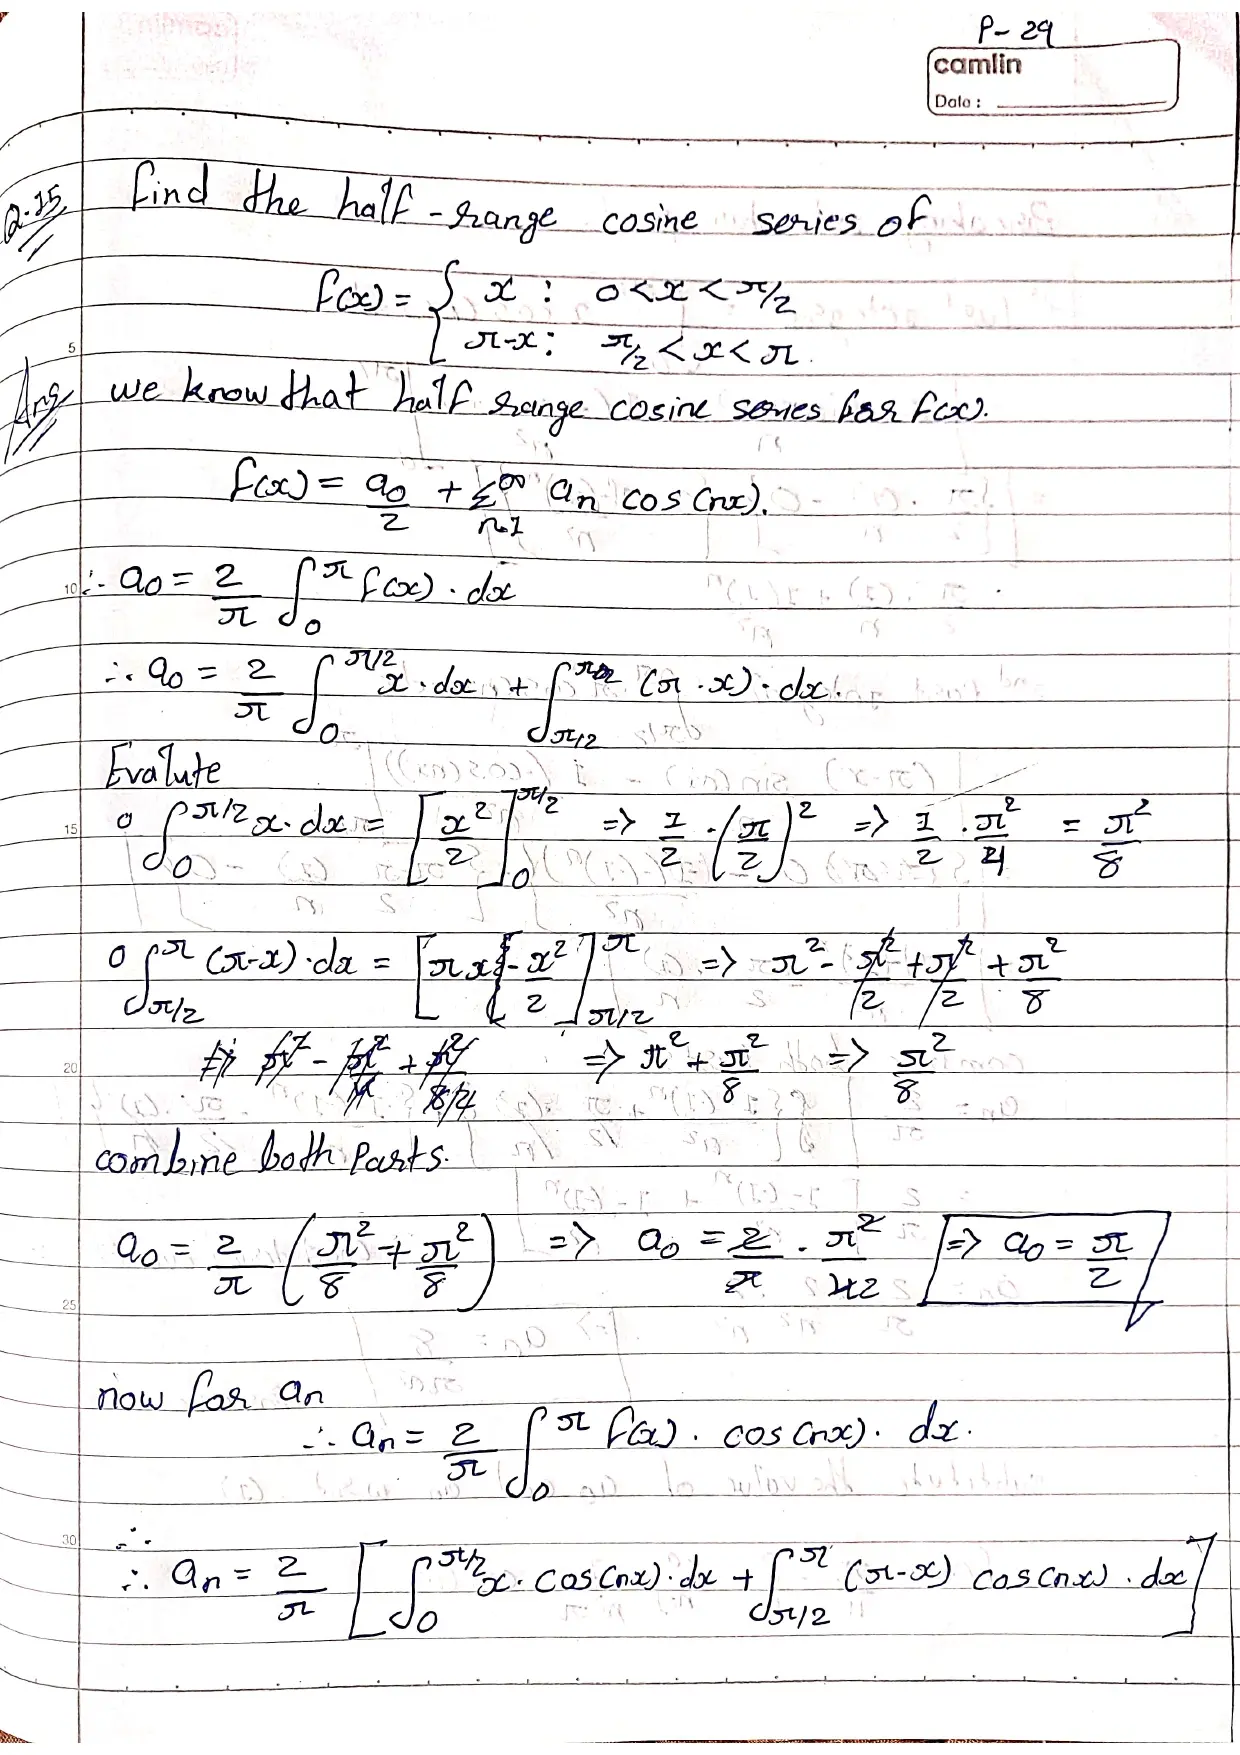 P-29
camlin
Date :
Q.15 find the half-range cosine series of
f(x) = { x : 0 < x < π/2
5 π-x : π/2 < x < π.
Ans we know that half range cosine series for f(x).
f(x) = a₀/2 + Σ^∞ n=1 aₙ cos(nx).
10 ∴ a₀ = 2/π ∫₀^π f(x) · dx
∴ a₀ = 2/π ∫₀^π/2 x · dx + ∫π/2^π (π - x) · dx.
Evalute
15 o ∫₀^π/2 x · dx = [x²/2]₀^π/2 => 1/2 · (π/2)² => 1/2 · π²/4 = π²/8
o ∫π/2^π (π-x) · dx = [πx - x²/2]π/2^π => π² - π²/2 + π²/2 + π²/8
20 => π² - π²/4 + π²/8/4 => π² + π²/8 => π²/8
combine both Parts.
a₀ = 2/π (π²/8 + π²/8) => a₀ = 2/π · π²/42 => a₀ = π/2
25
now for aₙ
∴ aₙ = 2/π ∫₀^π f(x) · cos(nx) · dx.
30
∴ aₙ = 2/π [∫₀^π/2 x · cos(nx) · dx + ∫π/2^π (π-x) cos(nx) · dx]